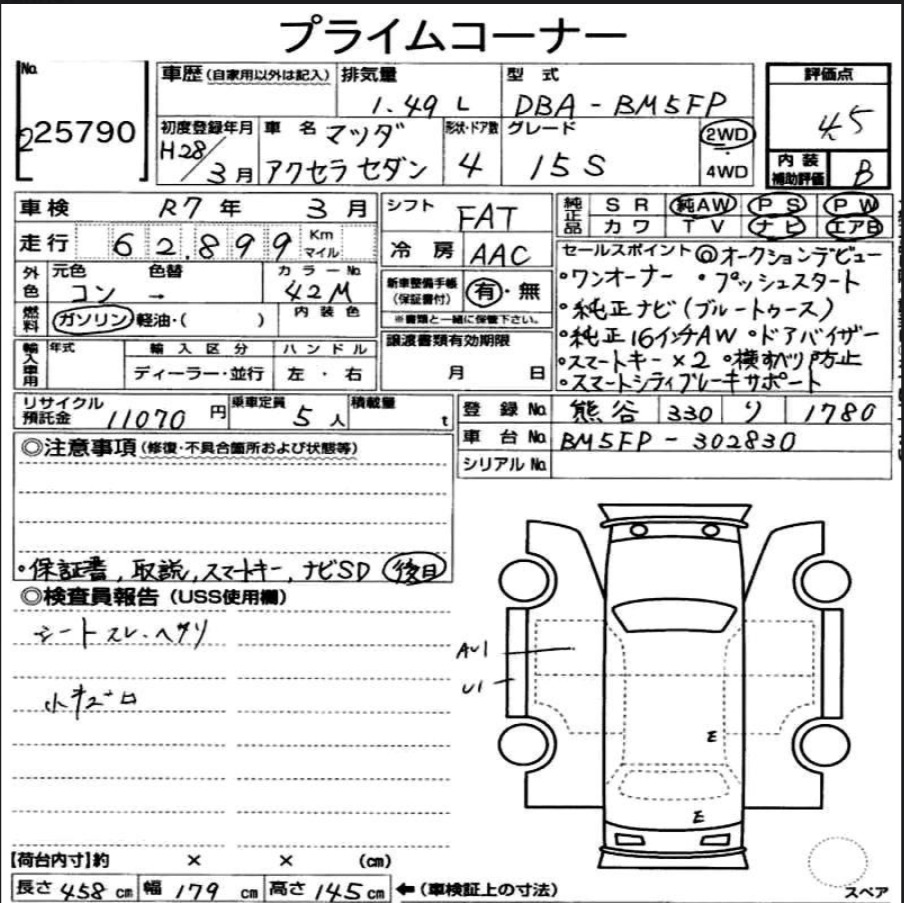 プライムコーナー
No.
225790
車歴 (自家用以外は記入)
排気量
1.49 L
型 式
DBA - BM5FP
評価点
4.5
初度登録年月
H28/3月
車 名
マツダ
アクセラ セダン
形状・ドア数
4
グレード
15S
2WD
4WD
内装
補助評価
B
車検 R7年 3月
シフト FAT
純正品
SR 純AW PS PW
カワ TV ナビ エアB
走行 62.899 Km マイル
冷房 AAC
セールスポイント ◎オークションデビュー
・ワンオーナー ・プッシュスタート
・純正ナビ(ブルートゥース)
・純正16インチAW ・ドアバイザー
・スマートキー×2 ・横すべり防止
・スマートシティブレーキサポート
外色
元色 色替 カラーNo.
コン → 42M
新車整備手帳
(保証書付)
有・無
※書類と一緒に保管下さい。
燃料
ガソリン 軽油・( )
内装色
譲渡書類有効期限
月 日
輸入車用
年式 輸入区分 ハンドル
ディーラー・並行 左・右
リサイクル
預託金 11070 円
乗車定員 5人
積載量 t
登録No. 熊谷 330 り 1780
車台No. BM5FP - 302830
シリアルNo.
◎注意事項 (修復・不具合箇所および状態等)
・保証書, 取説, スマートキー, ナビSD 後日
◎検査員報告 (USS使用欄)
シートスレ・ヘタリ
小キズ
AU1
U1
E
E
【荷台内寸】約 × × (cm)
長さ 458 cm 幅 179 cm 高さ 145 cm ←(車検証上の寸法)
スペア